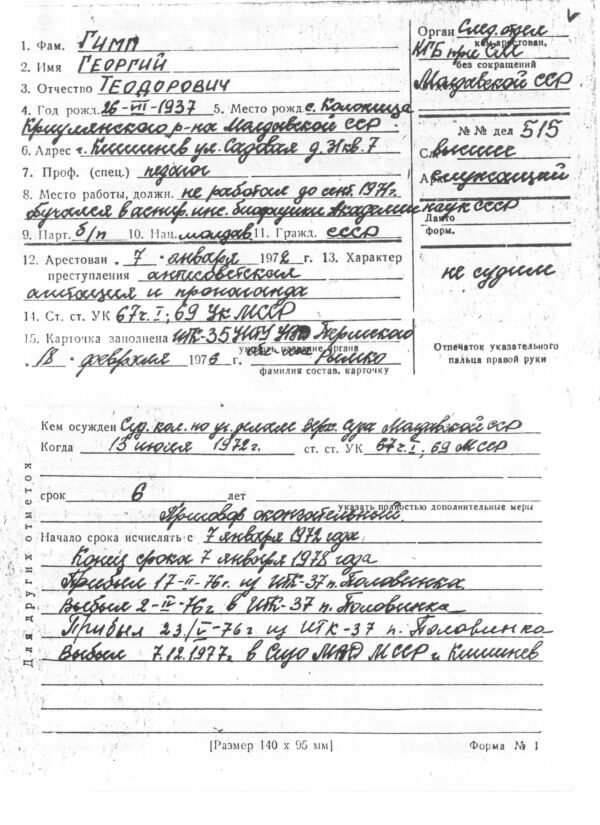 1. Фам. ГИМП
2. Имя ГЕОРГИЙ
3. Отчество ТЕОДОРОВИЧ
4. Год рожд. 26-VII-1937 5. Место рожд. с. Колоница
Криулянского р-на Молдавской ССР.
6. Адрес г. Кишинев ул. Садовая д. 31 кв. 7
7. Проф. (спец.)
8. Место работы, должн. не работал до сент. 1971г.
обучался в аспир. инс. биофизики Академии наук СССР
9. Парт. б/п 10. Нац. молдав. 11. Гражд. СССР
12. Арестован. 7. января 1972 г. 13. Характер
преступления антисоветская
агитация и пропаганда
14. Ст. ст. УК 67 ч. I; 69 УК МССР
15. Карточка заполнена ИТК-35 Пермского
указать название органа
18. февраля 1973 г.
фамилия состав. карточку
Орган След. отдел
кем арестован,
КГБ при СМ
без сокращений
Молдавской ССР
№ № дел 515
высшее
служащий
форм.
не судим
Отпечаток указательного
пальца правой руки
Кем осужден Суд. кол. по уг. делам Верх. Суда Молдавской ССР
Когда 15 июля 1972 г. ст. ст. УК 67 ч. I; 69 МССР
срок 6 лет
указать полностью дополнительные меры
Приговор окончательный
Начало срока исчислять с 7 января 1972 года
Конец срока 7 января 1978 года
Прибыл 17-II-76г. из ИТК-37 п. Половинка
Выбыл 2-IV-76г в ИТК-37 п. Половинка
Прибыл 23/V-76г из ИТК-37 п. Половинка
Выбыл 7.12.1977г. в МССР г. Кишинев
Для других отметок
[Размер 140 х 95 мм] Форма № 1